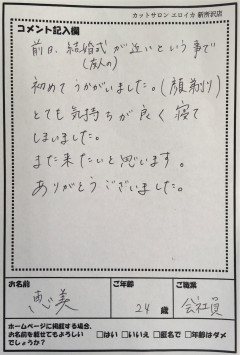 カットサロン エロイカ 新所沢店
コメント記入欄
前日、結婚式が近いという事で
(友人の)
初めてうかがいました。(顔剃り)
とても気持ちが良く寝て
しまいました。
また来たいと思います。
ありがとうございました。
お名前
ご年齢
ご職業
恵美
24 歳
会社員
ホームページに掲載する場合、
お名前を載せてもよろしい
でしょうか?
□はい □いいえ □匿名で □年齢はダメ